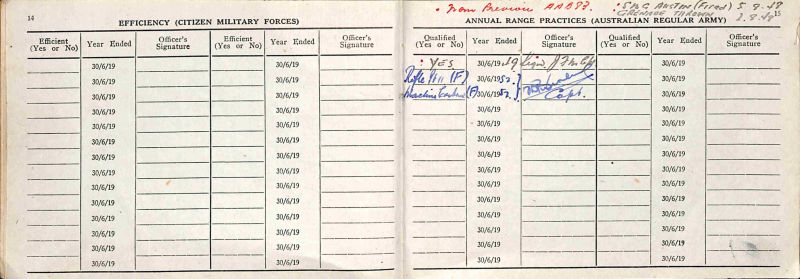 14
EFFICIENCY (CITIZEN MILITARY FORCES)
Efficient (Yes or No) Year Ended Officer's Signature Efficient (Yes or No) Year Ended Officer's Signature
30/6/19 30/6/19
30/6/19 30/6/19
30/6/19 30/6/19
30/6/19 30/6/19
30/6/19 30/6/19
30/6/19 30/6/19
30/6/19 30/6/19
30/6/19 30/6/19
30/6/19 30/6/19
30/6/19 30/6/19
30/6/19 30/6/19
30/6/19 30/6/19
30/6/19 30/6/19
30/6/19 30/6/19
• From Previous AAB83. • SMG AUSTEN (Fired) 5.9.48
GRENADE THROWN 2.8.48
15
ANNUAL RANGE PRACTICES (AUSTRALIAN REGULAR ARMY)
Qualified (Yes or No) Year Ended Officer's Signature Qualified (Yes or No) Year Ended Officer's Signature
YES 30/6/1949 30/6/19
Rifle (F) 30/6/1952 30/6/19
Machine Carbine (F) 30/6/1952 Capt. 30/6/19
30/6/19 30/6/19
30/6/19 30/6/19
30/6/19 30/6/19
30/6/19 30/6/19
30/6/19 30/6/19
30/6/19 30/6/19
30/6/19 30/6/19
30/6/19 30/6/19
30/6/19 30/6/19
30/6/19 30/6/19
30/6/19 30/6/19